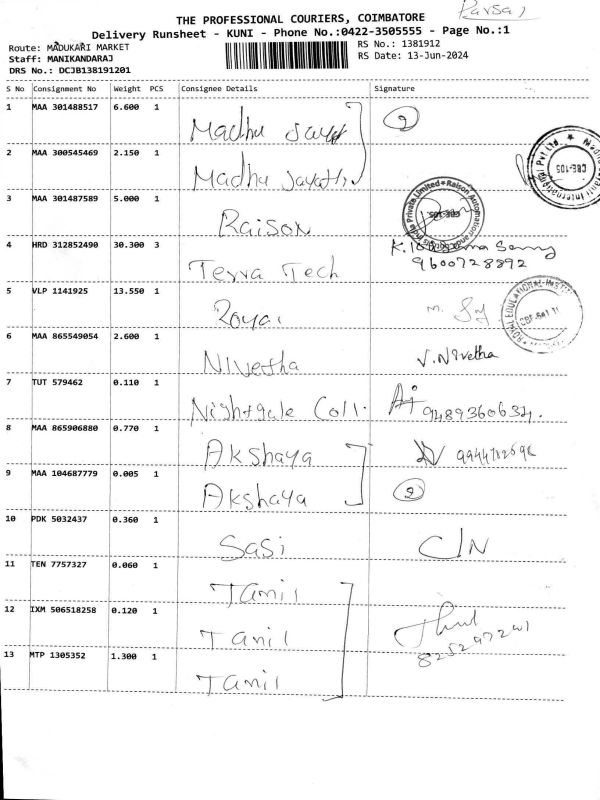 Parsal
THE PROFESSIONAL COURIERS, COIMBATORE
Delivery Runsheet - KUNI - Phone No.:0422-3505555 - Page No.:1
Route: MADUKARI MARKET
RS No.: 1381912
Staff: MANIKANDARAJ
RS Date: 13-Jun-2024
DRS No.: DCJB138191201
S No Consignment No Weight PCS Consignee Details Signature
1 MAA 301488517 6.600 1
Madhu
2
2 MAA 300545469 2.150 1
Madhu
CBE-105
3 MAA 301487589 5.000 1
Raison
4 HRD 312852490 30.300 3
9600728892
Terra Tech
5 VLP 1141925 13.550 1
Royal
6 MAA 865549054 2.600 1
Nivetha V. Nivetha
7 TUT 579462 0.110 1
Nightgale Coll. 9489360634.
8 MAA 865906880 0.770 1
Akshaya
9 MAA 104687779 0.005 1
Akshaya 2
10 PDK 5032437 0.360 1
Sasi C/N
11 TEN 7757327 0.060 1
Tamil
12 IXM 506518258 0.120 1
Tamil
13 MTP 1305352 1.300 1
Tamil